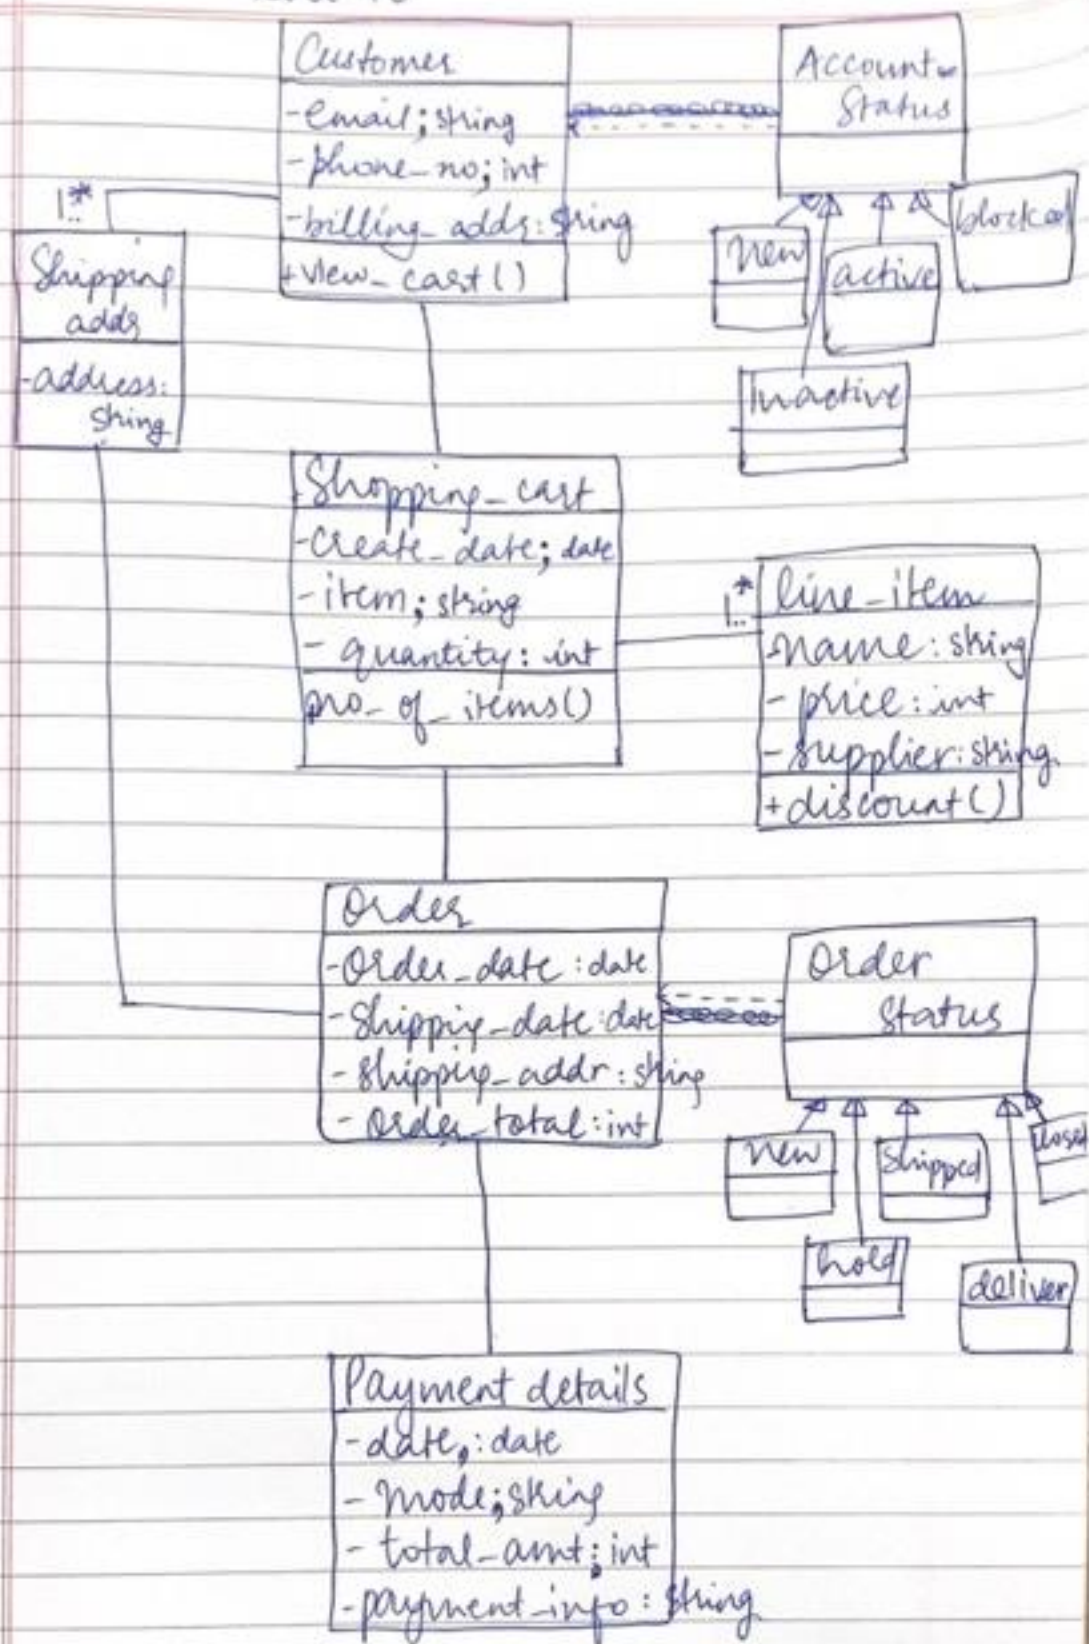 Customer
-email; string
-phone_no; int
-billing_addr: string
+view_cart()
Account
Status
new
active
blocked
Inactive
1..*
Shipping
addr
-address:
string
Shopping_cart
-create_date; date
-item; string
- quantity: int
no_of_items()
1..*
line_item
-name: string
- price: int
- supplier: string
+discount()
Order
-Order_date : date
-Shipping_date: date
- Shipping_addr: string
- Order_total: int
Order
Status
new
Shipped
closed
hold
deliver
Payment details
-date,: date
- Mode; string
- total_amt; int
-payment_info : string